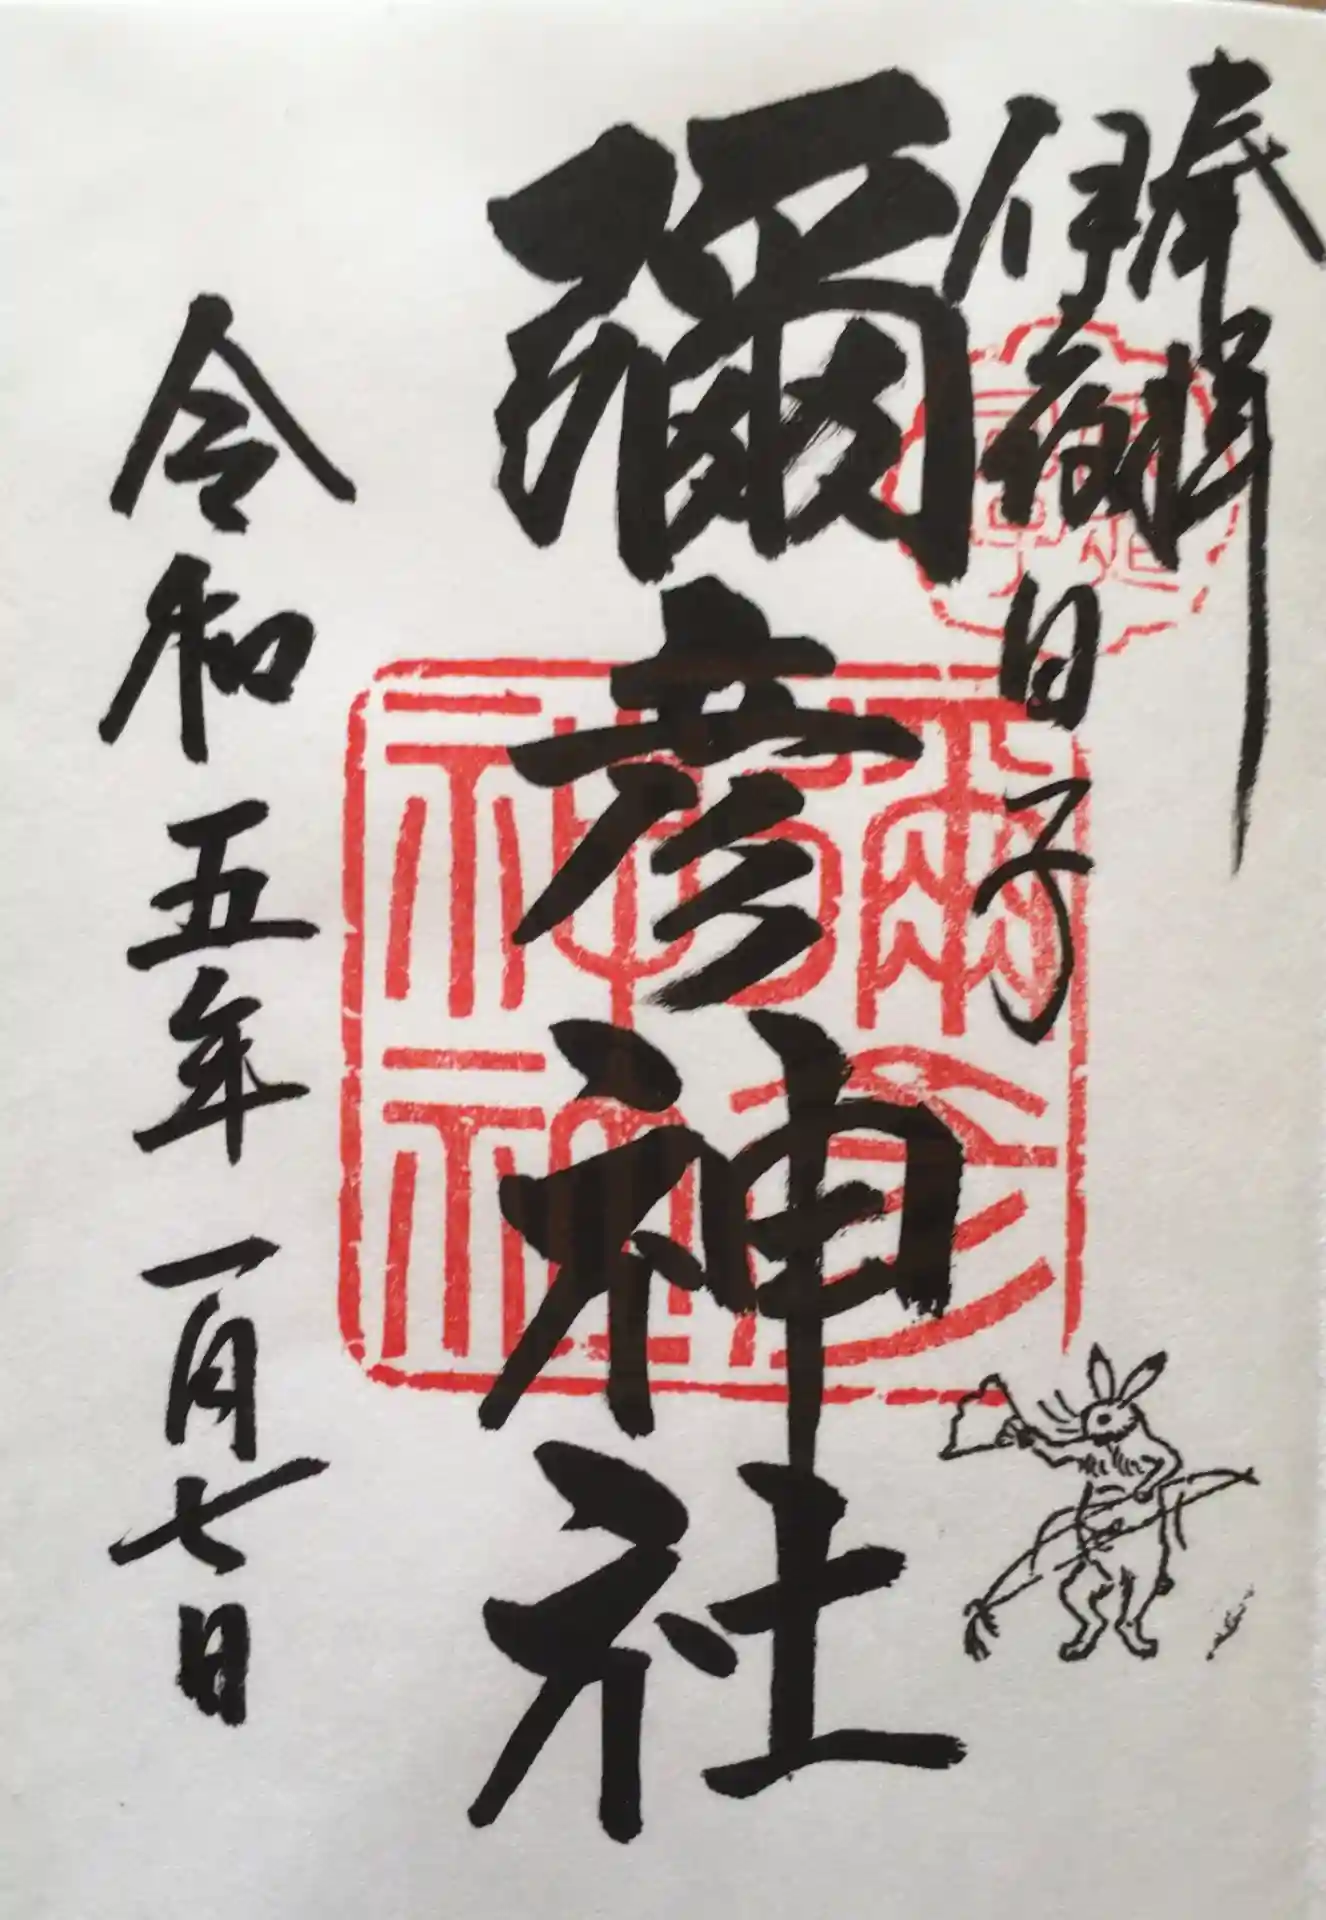 奉拝
伊夜日子
彌彦神社
令和五年一月七日
彌彦
神社